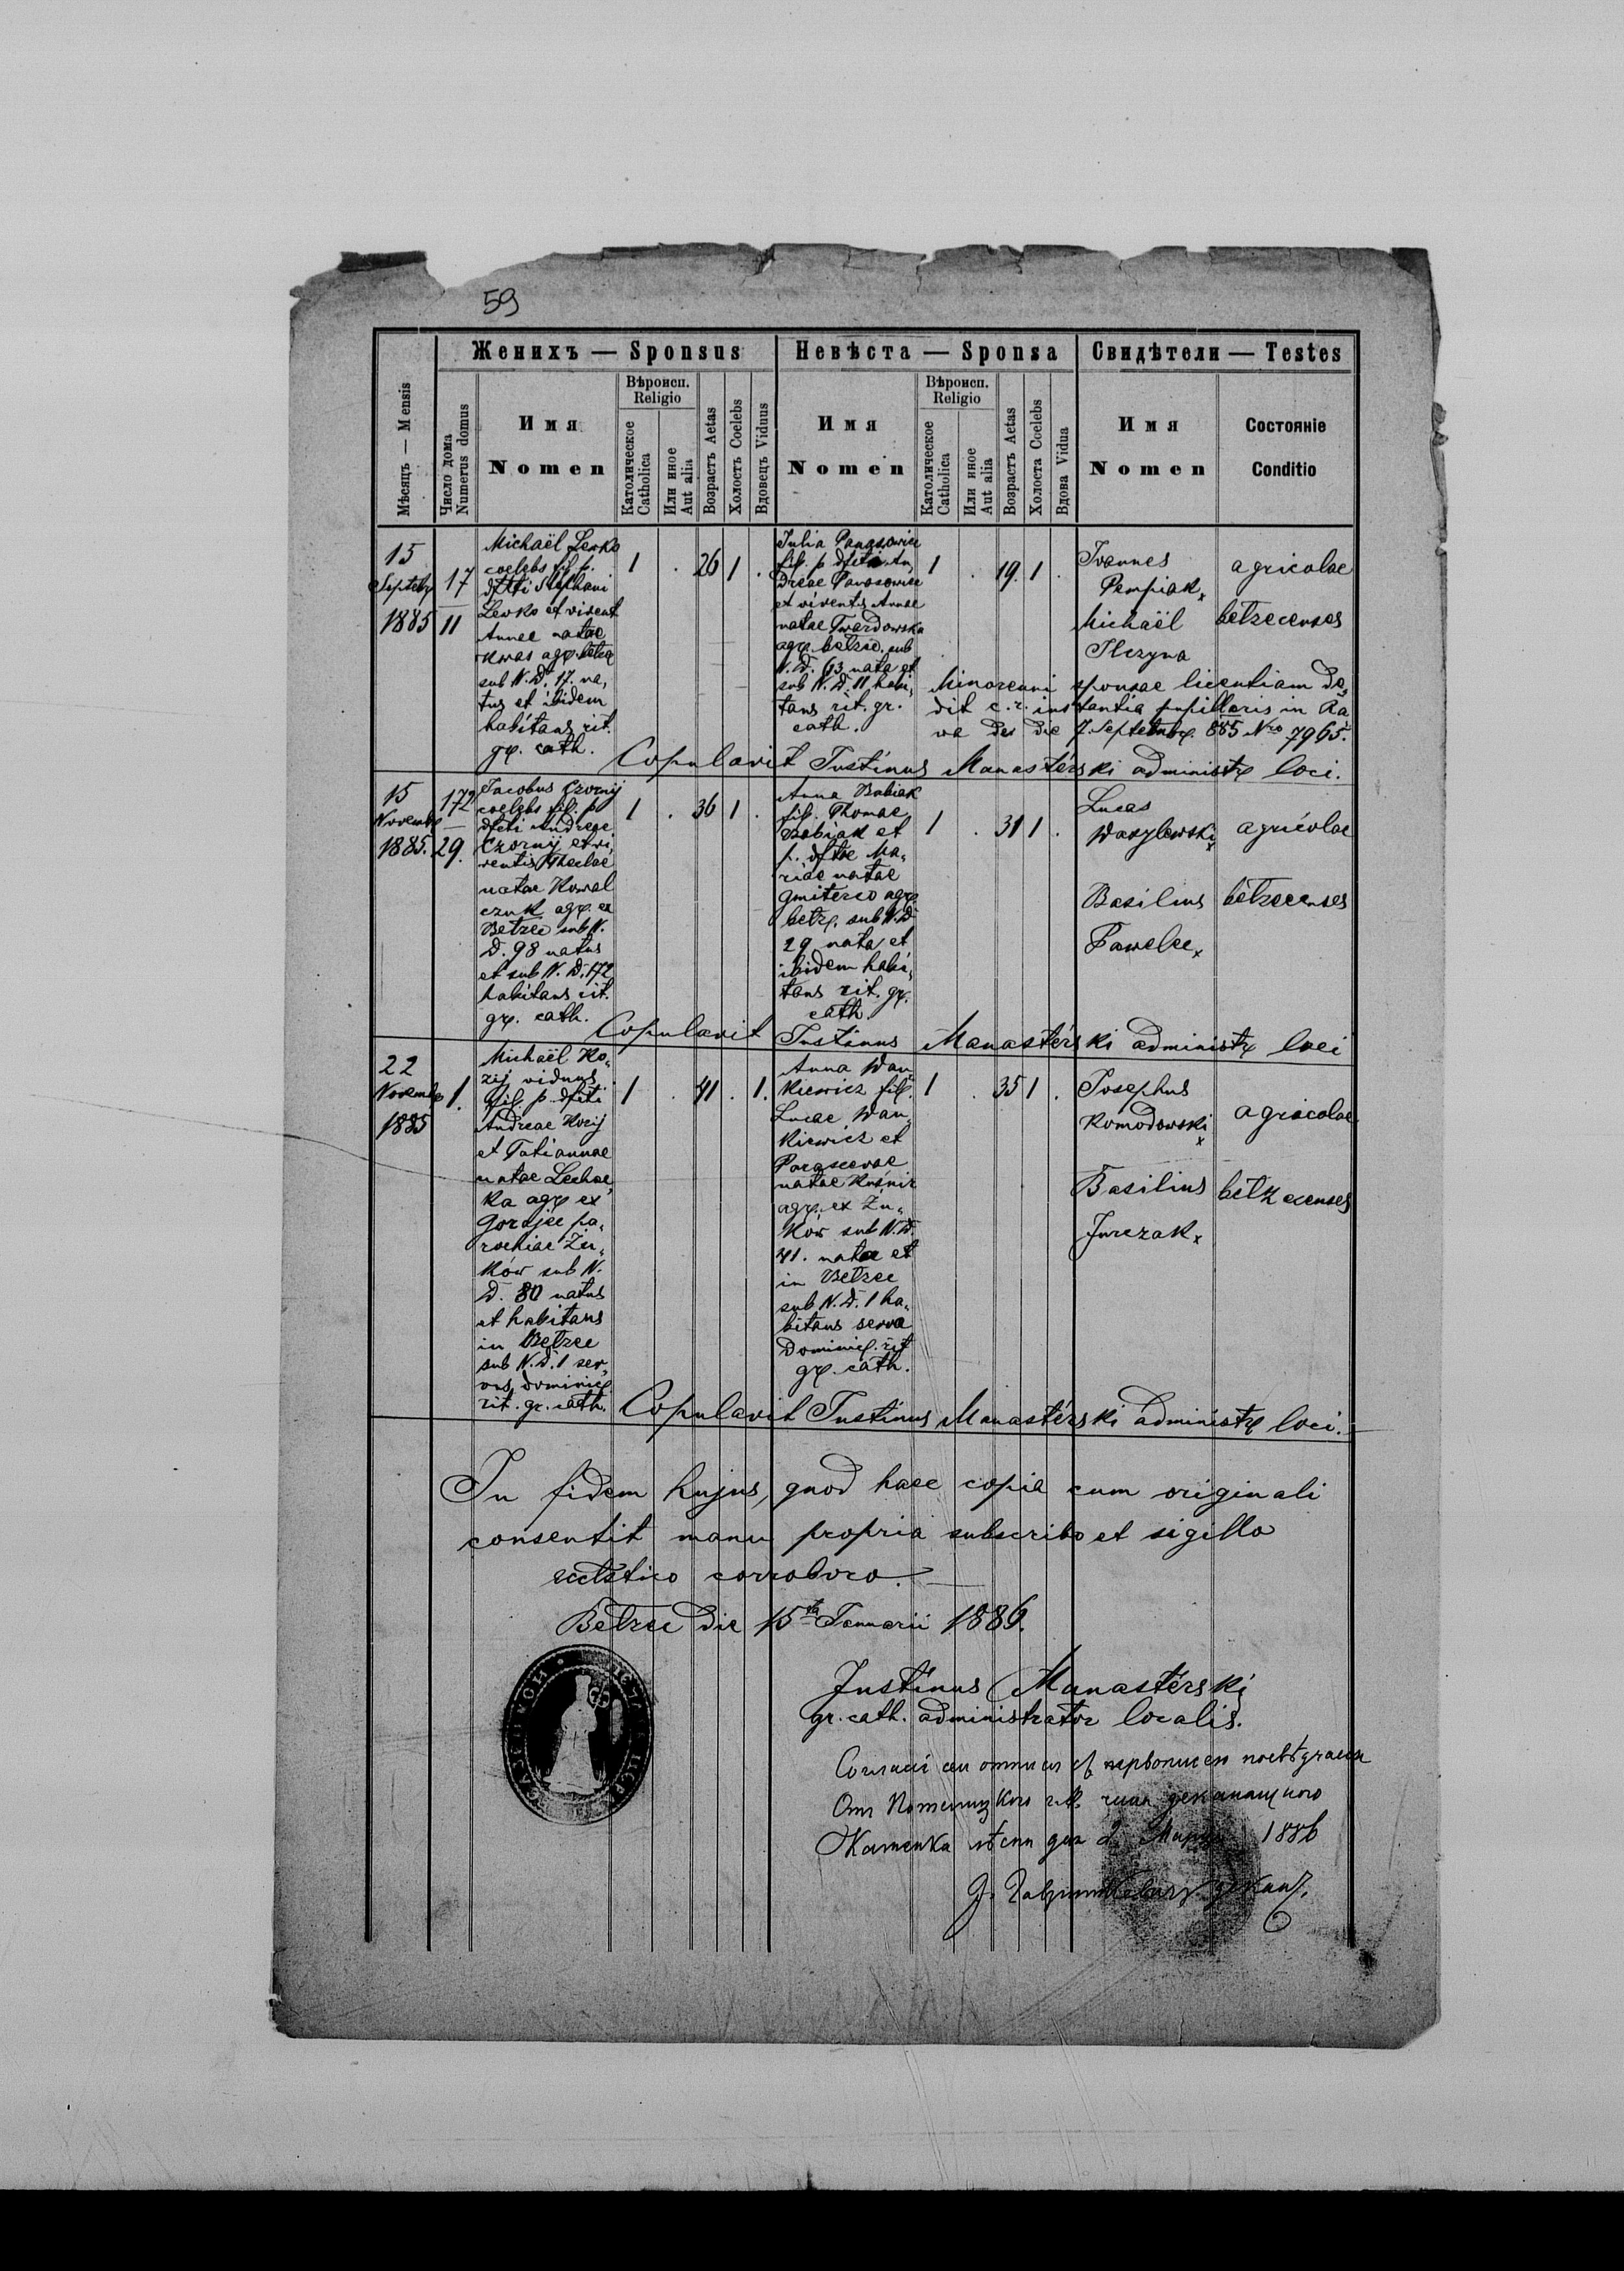 59
Женихъ — Sponsus
Невѣста — Sponsa
Свидѣтели — Testes
Мѣсяцъ — Mensis
Число дома
Numerus domus
Имя
Nomen
Вѣроисп.
Religio
Католическое
Catholica
Или иное
Aut alia
Возрастъ Aetas
Холостъ Coelebs
Вдовецъ Viduus
Имя
Nomen
Вѣроисп.
Religio
Католическое
Catholica
Или иное
Aut alia
Возрастъ Aetas
Холоста Coelebs
Вдова Vidua
Имя
Nomen
Состояніе
Conditio
15
Septebr
1885
17
11
Michaël Lewko
coelebs fil. p.
dfcti Stephani
Lewko et vivent
Annae natae
Kwas agr. betzec
sub N. D. 17. na„
tus et ibidem
habitans rit.
gr. cath.
1 . 26 1 .
Julia Panasowicz
fil. p. dfcti An„
dreae Panasowicz
et viventis Annae
natae Twardowska
agr. betzec. sub
N. D. 63 nata et
sub N. D. 11 habi„
tans rit. gr.
cath.
1 . 19. 1 .
Ioannes
Pempiak x
Michaël
Ilczyna
agricolae
betzecenses
Minorenni sponsae licentiam de„
dit c. r. instantia pupillaris in Ra„
wa die 7. Septembr. 885 Nro 7965.
Copulavit Justinus Manastérski administr loci.
15
Novembr
1885.
172
29.
Jacobus Czornij
coelebs fil. p.
dfcti Andreae
Czornij et vi„
ventis Theclae
natae Kowal
czuk agr. ex
Betzec sub N.
D. 98 natus
et sub N. D. 172
habitans rit.
gr. cath.
1 . 36 1 .
Anna Babiak
fil. Thomae
Babiak et
p. dftae Ma„
riae natae
Gmiterco agr.
betz. sub N. D
29 nata et
ibidem habi„
tans rit. gr.
cath.
1 . 31 1 .
Lucas
Wasylewski x
Basilius
Pawelec x
agricolae
betzecenses
Copulavit Justinus Manastérski administr loci
22
Novembr
1885
1.
Michaël Ko„
zij viduus
fil. p. dfcti
Andreae Kozij
et Tatiannae
natae Lechac„
ka agr. ex
Gorajec pa„
rochiae Żu„
ków sub N.
D. 80 natus
et habitans
in Betzec
sub N. D. 1 ser„
vus dominic.
rit. gr. cath.
1 . 41 . 1.
Anna Wan„
kiewicz fil.
Lucae Wan„
kiewicz et
Parascevae
natae Kuśnir
agr. ex Żu„
ków sub N. D.
41. nata et
in Betzec
sub N. D. 1 ha„
bitans serva
dominic. rit
gr. cath.
1 . 35 1 .
Josephus
Komodowski x
Basilius
Jurczak x
agricolae
betzecenses
Copulavit Justinus Manastérski administr loci.
In fidem hujus, quod haec copia cum originali
consentit manu propria subscribo et sigillo
corroboro.
Betzec die 15ta Januarii 1886.
Justinus Manastérski
gr. cath. administrator localis.
1886